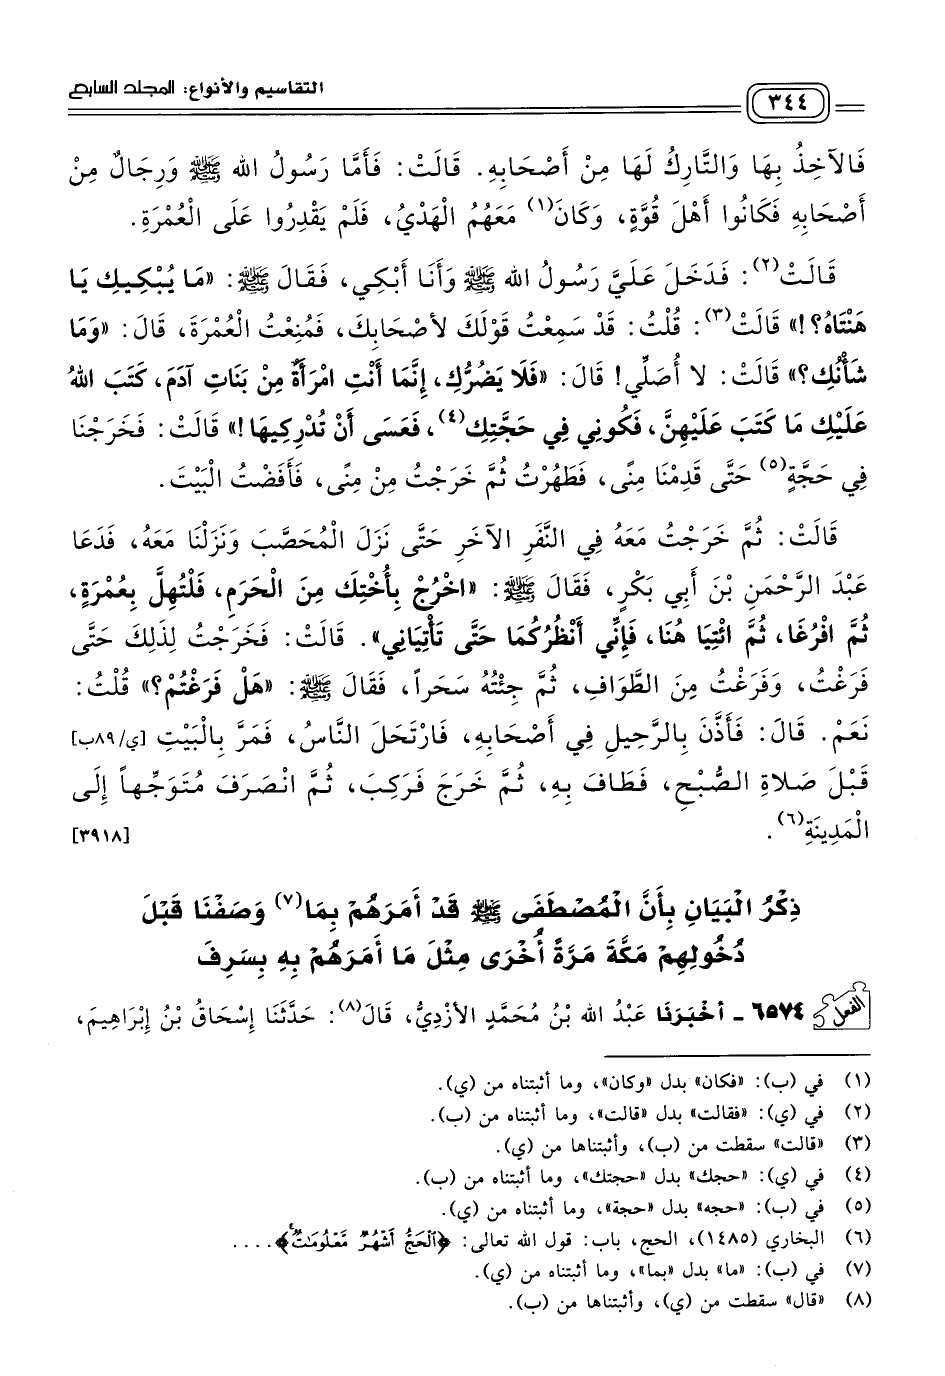 ٣٤٤
التقاسيم والأنواع: المجلد السابع
فَالآخِذُ بِهَا وَالتَّارِكُ لَهَا مِنْ أَصْحَابِهِ. قَالَتْ: فَأَمَّا رَسُولُ الله ﷺ وَرِجَالٌ مِنْ
أَصْحَابِهِ فَكَانُوا أَهْلَ قُوَّةٍ، وَكَانَ(١) مَعَهُمُ الْهَدْيُ، فَلَمْ يَقْدِرُوا عَلَى الْعُمْرَةِ.
قَالَتْ(٢): فَدَخَلَ عَلَيَّ رَسُولُ الله ﷺ وَأَنَا أَبْكِي، فَقَالَ ﷺ: «مَا يُبْكِيكِ يَا
هَنْتَاهُ؟!» قَالَتْ(٣): قُلْتُ: قَدْ سَمِعْتُ قَوْلَكَ لأَصْحَابِكَ، فَمُنِعْتُ الْعُمْرَةَ، قَالَ: «وَمَا
شَأْنُكِ؟» قَالَتْ: لا أُصَلِّي! قَالَ: «فَلَا يَضُرُّكِ، إِنَّمَا أَنْتِ امْرَأَةٌ مِنْ بَنَاتِ آدَمَ، كَتَبَ اللهُ
عَلَيْكِ مَا كَتَبَ عَلَيْهِنَّ، فَكُونِي فِي حَجَّتِكِ(٤)، فَعَسَى أَنْ تُدْرِكِيهَا!» قَالَتْ: فَخَرَجْنَا
فِي حَجَّةٍ(٥) حَتَّى قَدِمْنَا مِنًى، فَطَهُرْتُ ثُمَّ خَرَجْتُ مِنْ مِنًى، فَأَفَضْتُ الْبَيْتَ.
قَالَتْ: ثُمَّ خَرَجْتُ مَعَهُ فِي النَّفَرِ الآخَرِ حَتَّى نَزَلَ الْمُحَصَّبَ وَنَزَلْنَا مَعَهُ، فَدَعَا
عَبْدَ الرَّحْمَنِ بْنَ أَبِي بَكْرٍ، فَقَالَ ﷺ: «اخْرُجْ بِأُخْتِكَ مِنَ الْحَرَمِ، فَلْتُهِلَّ بِعُمْرَةٍ،
ثُمَّ افْرُغَا، ثُمَّ ائْتِيَا هُنَا، فَإِنِّي أَنْظُرُكُمَا حَتَّى تَأْتِيَانِي». قَالَتْ: فَخَرَجْتُ لِذَلِكَ حَتَّى
فَرَغْتُ، وَفَرَغْتُ مِنَ الطَّوَافِ، ثُمَّ جِئْتُهُ سَحَراً، فَقَالَ ﷺ: «هَلْ فَرَغْتُمْ؟» قُلْتُ:
نَعَمْ. قَالَ: فَأَذَّنَ بِالرَّحِيلِ فِي أَصْحَابِهِ، فَارْتَحَلَ النَّاسُ، فَمَرَّ بِالْبَيْتِ [ي/٨٩ب]
قَبْلَ صَلاةِ الصُّبْحِ، فَطَافَ بِهِ، ثُمَّ خَرَجَ فَرَكِبَ، ثُمَّ انْصَرَفَ مُتَوَجِّهاً إِلَى
الْمَدِينَةِ(٦). [٣٩١٨]
ذِكْرُ الْبَيَانِ بِأَنَّ الْمُصْطَفَى ﷺ قَدْ أَمَرَهُمْ بِمَا(٧) وَصَفْنَا قَبْلَ
دُخُولِهِمْ مَكَّةَ مَرَّةً أُخْرَى مِثْلَ مَا أَمَرَهُمْ بِهِ بِسَرِفَ
الفعل ٦٥٧٤ - أَخْبَرَنَا عَبْدُ الله بْنُ مُحَمَّدٍ الأَزْدِيُّ، قَالَ(٨): حَدَّثَنَا إِسْحَاقُ بْنُ إِبْرَاهِيمَ،
(١) في (ب): «فكان» بدل «وكان»، وما أثبتناه من (ي).
(٢) في (ي): «فقالت» بدل «قالت»، وما أثبتناه من (ب).
(٣) «قالت» سقطت من (ب)، وأثبتناها من (ي).
(٤) في (ي): «حجك» بدل «حجتك»، وما أثبتناه من (ب).
(٥) في (ب): «حجه» بدل «حجة»، وما أثبتناه من (ي).
(٦) البخاري (١٤٨٥)، الحج، باب: قول الله تعالى: ﴿ٱلْحَجُّ أَشْهُرٌ مَّعْلُومَـٰتٌ﴾....
(٧) في (ب): «ما» بدل «بما»، وما أثبتناه من (ي).
(٨) «قال» سقطت من (ي)، وأثبتناها من (ب).